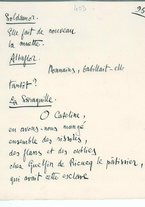 403
95
Soldamor.
Elle fait de nouveau
la muette.
Altaflor.
Pommains, babillait-elle
tantôt ?
La Saraquille
O Catoline,
en avons-nous mangé
ensemble des rissoles,
des flans et des oublies
chez Guelfin de Bicucq le pâtissier,
qui avait cette esclave